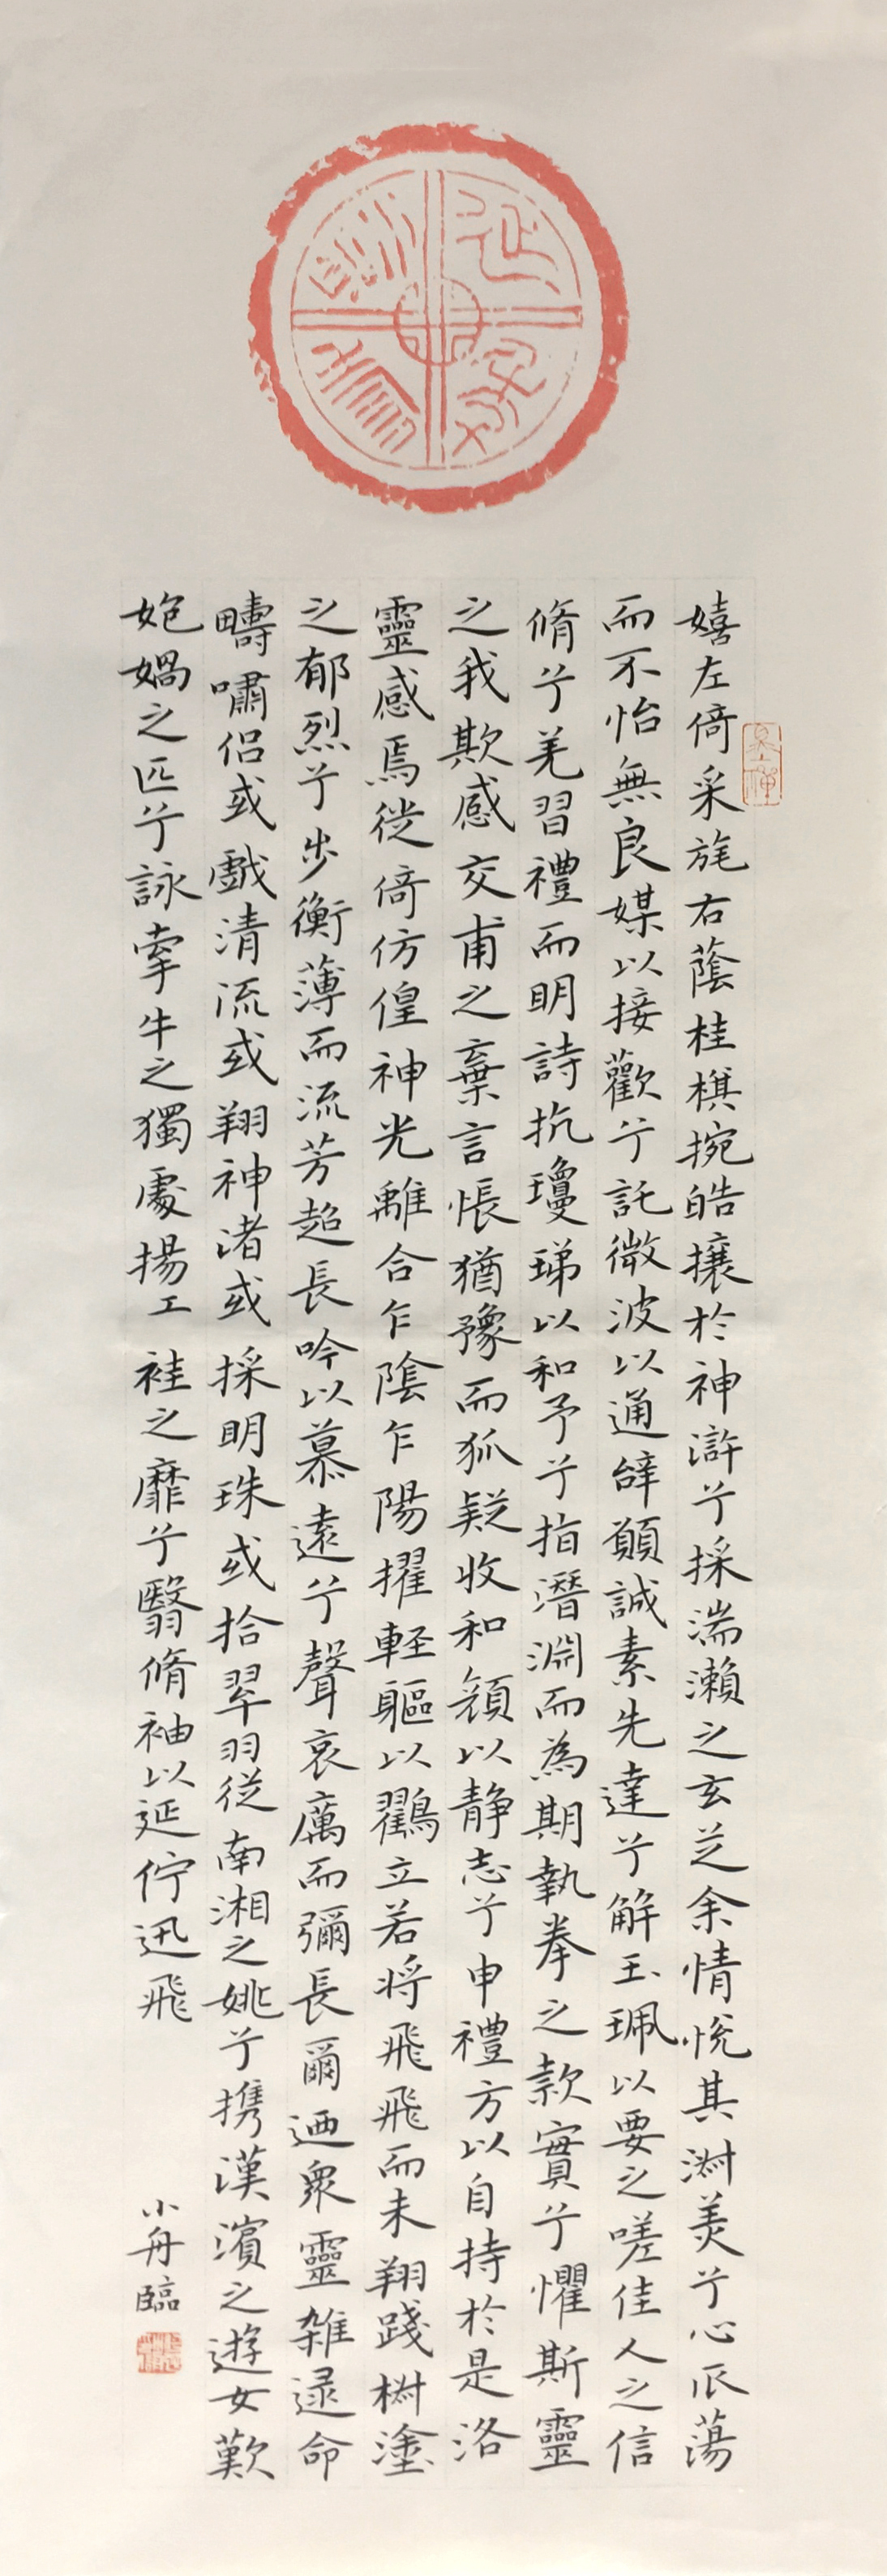 延年
益壽
嬉左倚采旄右蔭桂棋捥皓攘於神滸兮採湍瀨之玄芝余情悅其淑美兮心振蕩
而不怡無良媒以接歡兮託微波以通辭願誠素先達兮解玉珮以要之嗟佳人之信
脩兮羌習禮而明詩抗瓊珶以和予兮指潛淵而為期執拳之款實兮懼斯靈
之我欺感交甫之棄言悵猶豫而狐疑收和顏以靜志兮申禮方以自持於是洛
靈感焉徙倚仿偟神光離合乍陰乍陽擢軽軀以鸛立若將飛飛而未翔踐椒塗
之郁烈兮步衡薄而流芳超長吟以慕遠兮聲哀厲而彌長爾迺眾靈雜遝命
疇嘯侶或戲清流或翔神渚或採明珠或拾翠羽従南湘之姚兮携漢濱之遊女歎
媩媧之匹兮詠牽牛之獨處揚工袿之靡兮翳脩袖以延佇迅飛
小舟臨